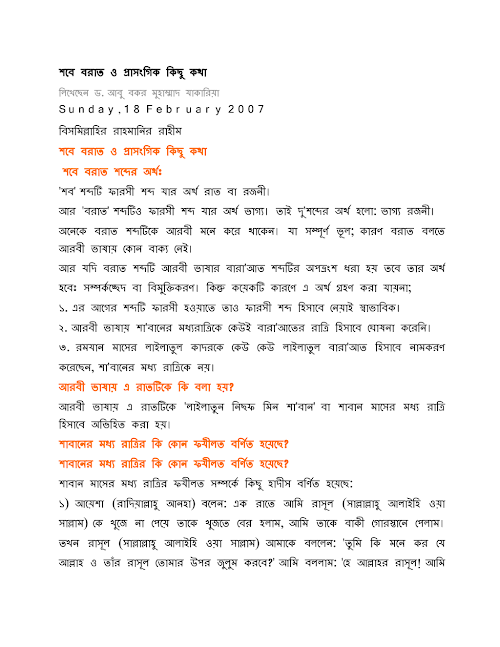 শবে বরাত ও প্রাসংগিক কিছু কথা
লিখেছেন ড. আবু বকর মুহাম্মাদ যাকারিয়া
Sunday, 18 February 2007
বিসমিল্লাহির রাহমানির রাহীম
শবে বরাত ও প্রাসংগিক কিছু কথা
শবে বরাত শব্দের অর্থঃ
'শব' শব্দটি ফারসী শব্দ যার অর্থ রাত বা রজনী।
আর 'বরাত' শব্দটিও ফারসী শব্দ যার অর্থ ভাগ্য। তাই দু'শব্দের অর্থ হলো: ভাগ্য রজনী।
অনেকে বরাত শব্দটিকে আরবী মনে করে থাকেন। যা সম্পূর্ণ ভূল; কারণ বরাত বলতে
আরবী ভাষায় কোন বাক্য নেই।
আর যদি বরাত শব্দটি আরবী ভাষার বারা'আত শব্দটির অপভ্রংশ ধরা হয় তবে তার অর্থ
হবেঃ সম্পর্কচ্ছেদ বা বিমুক্তিকরণ। কিন্তু কয়েকটি কারণে এ অর্থ গ্রহণ করা যায়না;
১. এর আগের শব্দটি ফারসী হওয়াতে তাও ফারসী শব্দ হিসাবে নেয়াই স্বাভাবিক।
২. আরবী ভাষায় শা'বানের মধ্যরাত্রিকে কেউই বারা'আতের রাত্রি হিসাবে ঘোষনা করেনি।
৩. রমযান মাসের লাইলাতুল কাদরকে কেউ কেউ লাইলাতুল বারা'আত হিসাবে নামকরণ
করেছেন, শা'বানের মধ্য রাত্রিকে নয়।
আরবী ভাষায় এ রাতটিকে কি বলা হয়?
আরবী ভাষায় এ রাতটিকে 'লাইলাতুন নিছফ মিন শা'বান' বা শাবান মাসের মধ্য রাত্রি
হিসাবে অভিহিত করা হয়।
শাবানের মধ্য রাত্রির কি কোন ফযীলত বর্ণিত হয়েছে?
শাবানের মধ্য রাত্রির কি কোন ফযীলত বর্ণিত হয়েছে?
শাবান মাসের মধ্য রাত্রির ফযীলত সম্পর্কে কিছু হাদীস বর্ণিত হয়েছে:
১) আয়েশা (রাদিয়াল্লাহু আনহা) বলেন: এক রাতে আমি রাসূল (সাল্লাল্লাহু আলাইহি ওয়া
সাল্লাম) কে খুজে না পেয়ে তাকে খুজতে বের হলাম, আমি তাকে বাকী গোরস্তানে পেলাম।
তখন রাসূল (সাল্লাল্লাহু আলাইহি ওয়া সাল্লাম) আমাকে বললেন: 'তুমি কি মনে কর যে
আল্লাহ ও তাঁর রাসূল তোমার উপর জুলুম করবে?' আমি বললাম: 'হে আল্লাহর রাসূল! আমি